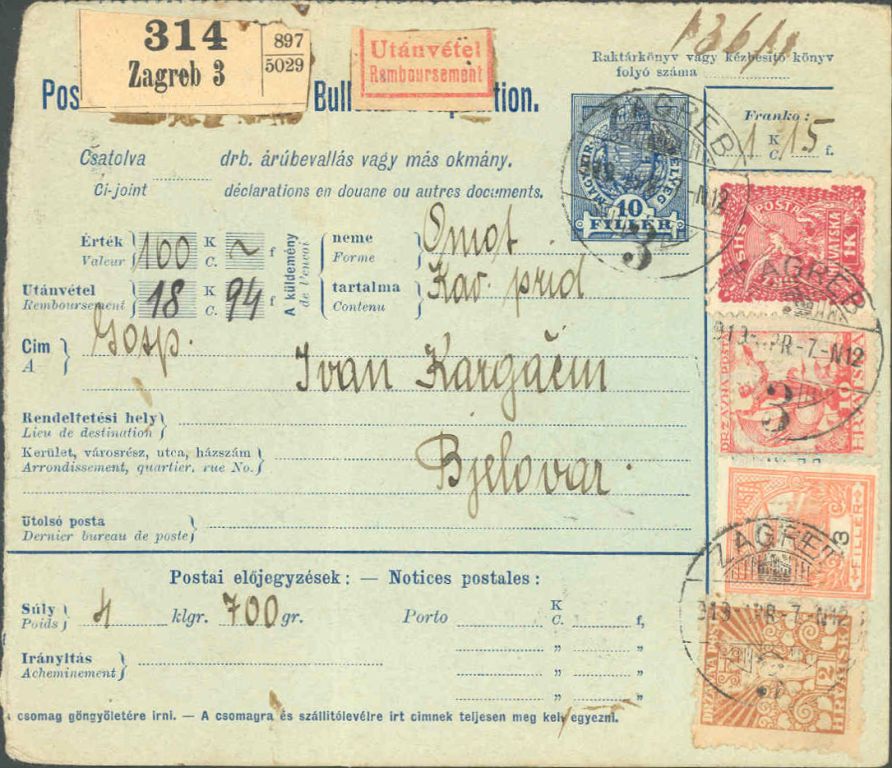 314
897
5029
Zagreb 3
Utánvétel
Remboursement
Raktárkönyv vagy kézbesitő könyv
folyó száma
Pos
Bull
tion.
Franko:
K
C.
1
15
f.
MAGYAR
10
FILLÉR
Csatolva drb. árúbevallás vagy más okmány.
Ci-joint déclarations en douane ou autres documents.
Érték
Valeur
100
K
C.
f
A küldemény
de l'envoi
neme
Forme
Omot
Utánvétel
Remboursement
18
K
C.
94
f
tartalma
Contenu
Kav. prid
Cim
A
Gosp.
Ivan Kargačin
Rendeltetési hely
Lieu de destination
Kerület, városrész, utca, házszám
Arrondissement, quartier, rue No.
Bjelovar.
Utolsó posta
Dernier bureau de poste
Postai előjegyzések: — Notices postales:
Súly
Poids
4 klgr. 700 gr.
Porto
K
C.
f,
Irányitás
Acheminement
" "
" "
" "
a csomag göngyöletére irni. — A csomagra és szállitólevélre irt cimnek teljesen meg kell egyezni.
ZAGREB
-N12
3
SHS
POSTA
HRVATSKA
1K
ZAGREB
919 APR-7.-N12
3
DRŽAVNA POŠTA
10
HRVATSKA
3
FILLÉR
ZAGREB
919 APR-7.-N12
2
HRVATSKA